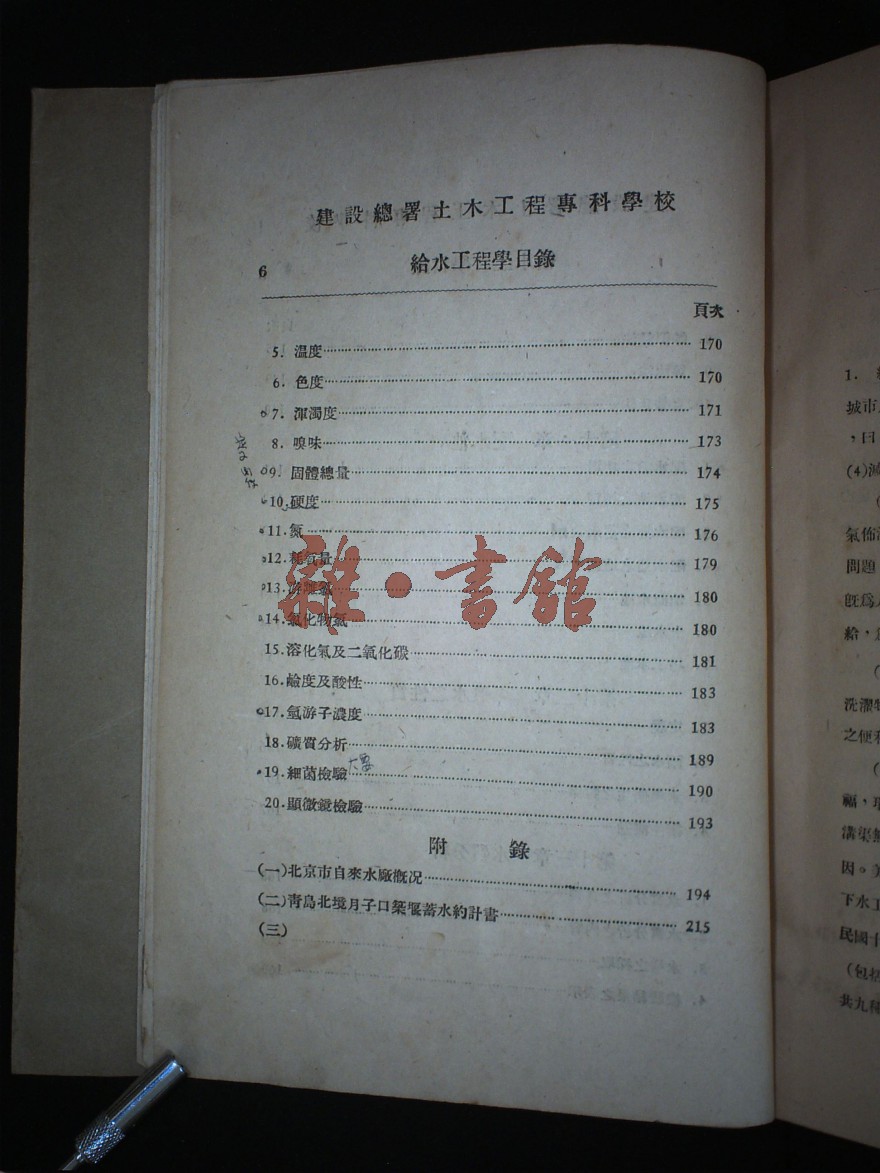 建設總署土木工程專科學校
6 給水工程學目錄
頁次
5. 溫度 170
6. 色度 170
7. 渾濁度 171
8. 嗅味 173
9. 固體總量 174
10. 硬度 175
11. 氮 176
12. 耗氧量 179
13. 180
14. 氯化物 180
15. 溶化氧及二氧化碳 181
16. 鹼度及酸性 183
17. 氫游子濃度 183
18. 礦質分析 189
19. 細菌檢驗 190
20. 顯微鏡檢驗 193
附錄
(一)北京市自來水廠概况 194
(二)靑島北境月子口築堰蓄水約計書 215
(三)
雜·書館
1.
城市
，曰
(4)減
氣佈
問題
旣爲
給，
洗濯物
之便利
福，
溝渠
因。
下水工
民國十
(包括
共九種